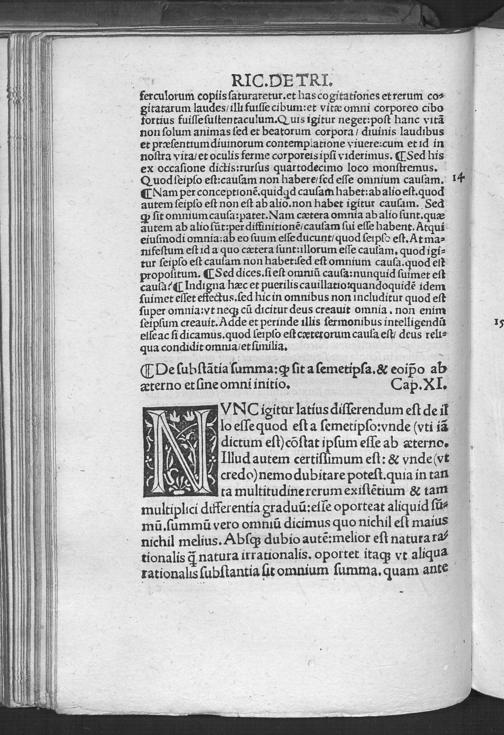 RIC. DE TRI.
ferculorum copiis saturaretur. et has cogitationes et rerum co-
gitatarum laudes/ illi fuisse cibum: et vitæ omni corporeo cibo
fortius fuisse sustentaculum. Quis igitur neget: post hanc vitā
non solum animas sed et beatorum corpora/ diuinis laudibus
et præsentium diuinorum contemplatione viuere: cum et id in
nostra vita/ et oculis ferme corporeis ipsi viderimus. ¶ Sed his
ex occasione dictis: rursus quartodecimo loco monstremus.
Quod seipso est: causam non habere/ sed esse omnium causam. 14
¶ Nam per conceptionē. quidqd causam habet: ab alio est. quod
autem seipso est non est ab alio. non habet igitur causam. Sed
ꝙ sit omnium causa: patet. Nam cætera omnia ab alio sunt. quæ
autem ab alio sūt: per diffinitionē/ causam sui esse habent. Atqui
eiusmodi omnia: ab eo suum esse ducunt/ quod seipso est. At ma-
nifestum est id a quo cætera sunt: illorum esse causam. quod igi-
tur seipso est causam non habet: sed est omnium causa. quod est
propositum. ¶ Sed dices. si est omniū causa: nunquid suimet est
causa? ¶ Indigna hæc et puerilis cauillatio: quandoquidē idem
suimet esset effectus. sed hic in omnibus non includitur quod est
super omnia: vt neqꝫ cū dicitur deus creauit omnia. non enim
seipsum creauit. Adde et perinde illis sermonibus intelligendū
esse ac si dicamus. quod seipso est cæterorum causa est/ deus reli- 15
qua condidit omnia/ et similia.
¶ De substātia summa: ꝙ sit a semetipsa. & eoip̄o ab
æterno et sine omni initio. Cap. XI.
NVNC igitur latius disserendum est de il
lo esse quod est a semetipso: vnde (vti iā
dictum est) cōstat ipsum esse ab æterno.
Illud autem certissimum est: & vnde (vt
credo) nemo dubitare potest. quia in tan
ta multitudine rerum existētium & tam
multiplici differentia graduū: esse oporteat aliquid sū-
mū. summū vero omniū dicimus quo nichil est maius
nichil melius. Absqꝫ dubio autē: melior est natura ra-
tionalis q̄ natura irrationalis. oportet itaqꝫ vt aliqua
rationalis substantia sit omnium summa. quam ante